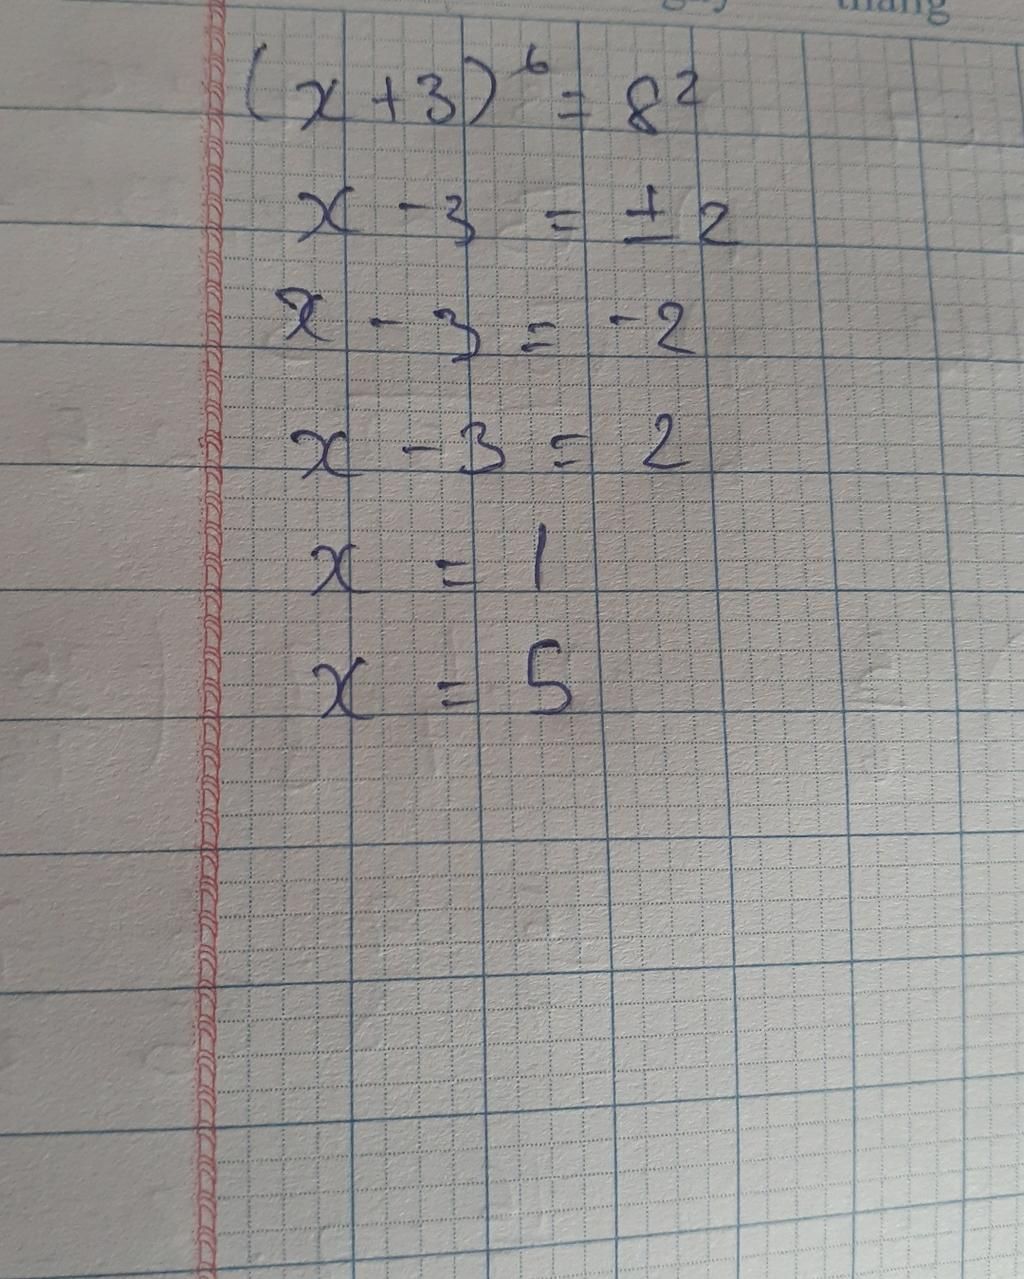 tháng
(x + 3)⁶ = 8²
x - 3 = ± 2
x - 3 = -2
x - 3 = 2
x = 1
x = 5